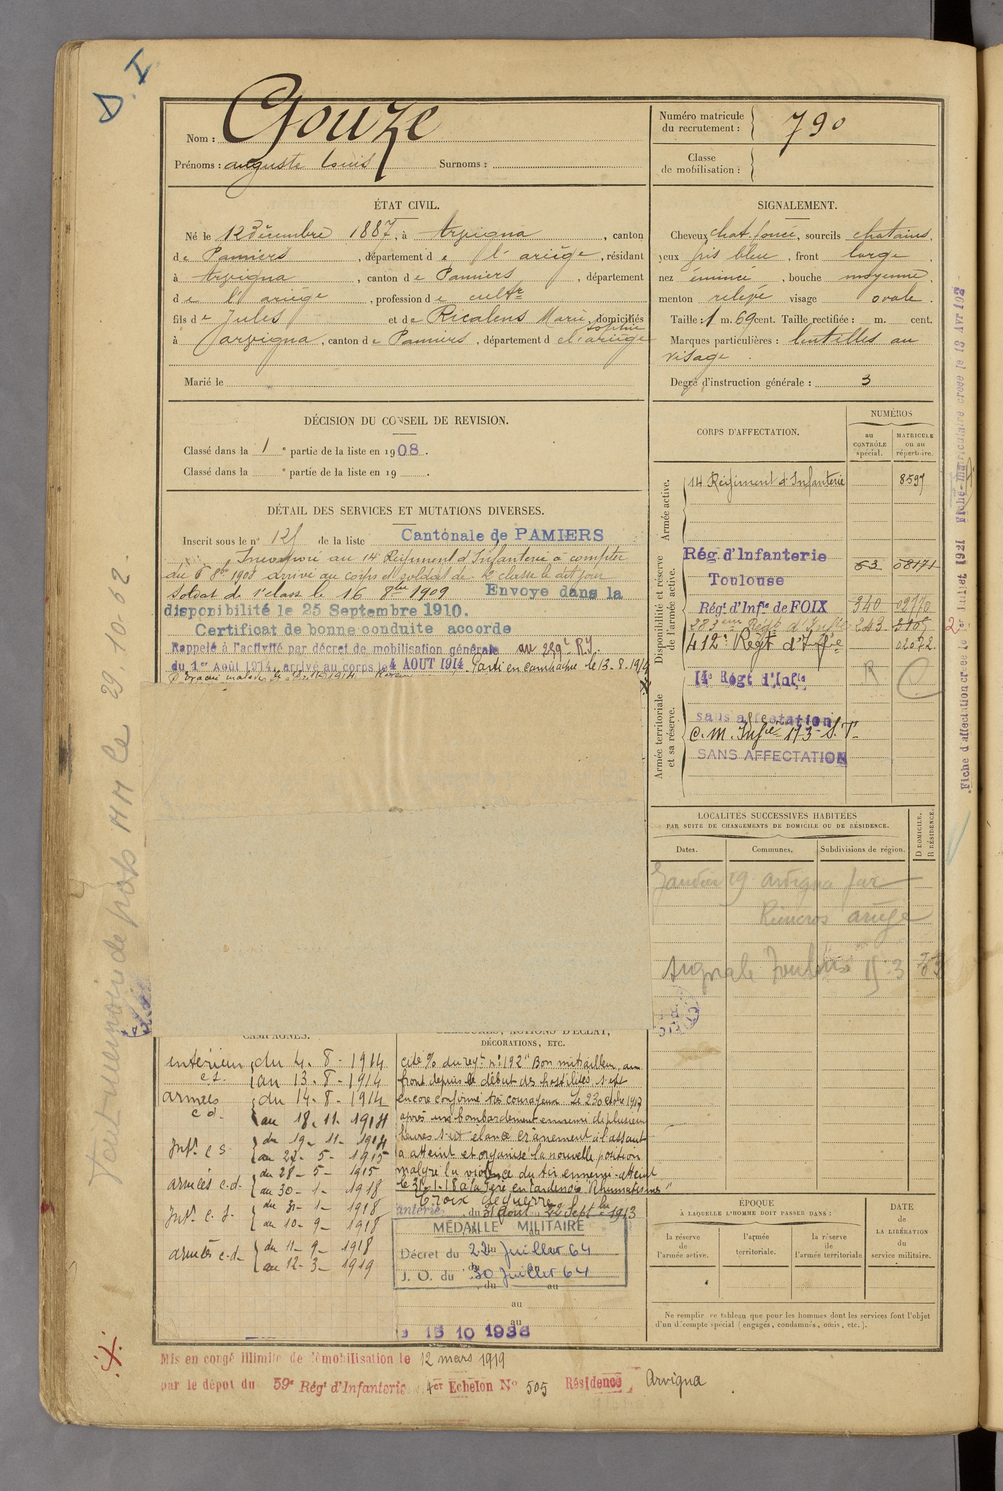 D. I
Nom : Gouze
Prénoms : auguste louis Surnoms :
Numéro matricule du recrutement : 790
Classe de mobilisation :
ÉTAT CIVIL.
Né le 12 décembre 1887, à Arvigna, canton
de Pamiers, département de l'ariège, résidant
à Arvigna, canton de Pamiers, département
de l'ariège, profession de cultr
fils de Jules et de Ricalens Marie Sophie, domiciliés
à arvigna, canton de Pamiers, département de l'ariège
Marié le
SIGNALEMENT.
Cheveux chat. foncé, sourcils chatains,
yeux gris bleu, front large
nez émincé, bouche moyenne
menton relevé visage ovale.
Taille : 1 m. 69 cent. Taille rectifiée : m. cent.
Marques particulières : lentilles au
visage.
Degré d'instruction générale : 3
DÉCISION DU CONSEIL DE REVISION.
Classé dans la 1e partie de la liste en 1908.
Classé dans la e partie de la liste en 19
CORPS D'AFFECTATION.
NUMÉROS
au CONTRÔLE spécial.
MATRICULE ou au répertoire.
DÉTAIL DES SERVICES ET MUTATIONS DIVERSES.
Inscrit sous le n° de la liste Cantonale de PAMIERS
Incorporé au 14 Régiment d'Infanterie à compter
du 8bre 1908 arrivé au corps et soldat de 2e classe le dit jour
Soldat de 1e classe le 16 8bre 1909 Envoyé dans la
disponibilité le 25 Septembre 1910.
Certificat de bonne conduite accordé
Rappelé à l'activité par décret de mobilisation générale au 259e R.I.
du 1er Août 1914, arrivé au corps le 4 AOUT 1914 Parti en campagne le 13.8.1914
Armée active.
14 Régiment d'Infanterie 8597
Disponibilité et réserve de l'armée active.
Rég. d'Infanterie
Toulouse
Rég. d'Infie de FOIX 340 02770
283eme Régt d'Infie 243
412e Régt d'Infie 02072
Armée territoriale et sa réserve.
14e Régt d'Infie R
sans affectation
C. M. Infie 173 S. T.
SANS AFFECTATION
LOCALITÉS SUCCESSIVES HABITÉES
PAR SUITE DE CHANGEMENTS DE DOMICILE OU DE RÉSIDENCE.
Dates. Communes. Subdivisions de région. D DOMICILE. R RÉSIDENCE.
Janvier 19 arvigna par
Rieucros ariège
CAMPAGNES.
intérieur du 4-8-1914
c s. au 13-8-1914
armées du 14-8-1914
c d. au 18-11-1914
Intr c s du 19-11-1914
au 27-5-1915
armées c.d. du 28-5-1915
au 30-1-1918
Intr c s. du 31-1-1918
au 10-9-1918
armées c d. du 11-9-1918
au 12-3-1919
BLESSURES, ACTIONS D'ÉCLAT, DÉCORATIONS, ETC.
Cité % du regt n° 192 "Bon mitrailleur, au
front depuis le début des hostilités s'est
encore confirmé très courageux. Le 23 octobre 1917
après un bombardement ennemi de plusieurs
heures s'est élancé crânement à l'assaut
a atteint et organisé la nouvelle position
malgré la violence du tir ennemi. atteint
"Rhumatismes"
Croix de guerre
du 31 Août au 22 Septbre 1913
MÉDAILLE MILITAIRE
Décret du 22 Juillet 64
J. O. du 30 Juillet 64
du au
au
au
15 10 1936
ÉPOQUE
À LAQUELLE L'HOMME DOIT PASSER DANS :
la réserve de l'armée active.
l'armée territoriale.
la réserve de l'armée territoriale
DATE de LA LIBÉRATION du service militaire.
Ne remplir ce tableau que pour les hommes dont les services font l'objet
d'un décompte spécial (engagés, condamnés, omis, etc.).
Mis en congé illimité de démobilisation le 12 mars 1919
par le dépôt du 59e Régt d'Infanterie 4er Echelon N° 505 Résidence Arvigna
MM le 29.10.62
Fiche d'affectation créée le 1er Juillet 1921
Fiche matriculaire créée le 13 Avr 192